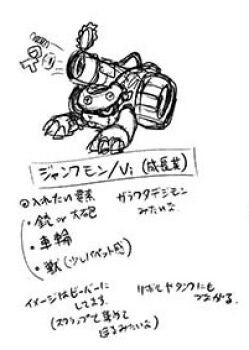 ジャンクモン/Vi (成長期)
◎入れたい要素
・銃 or 大砲
・車輪
・獣 (少しパペット感)
ガラクタデジモン
みたいな。
イメージはビーバーに
してます。
(スクラップを集めて
はるみたいな)
リボルヤタンクにも
つながる。